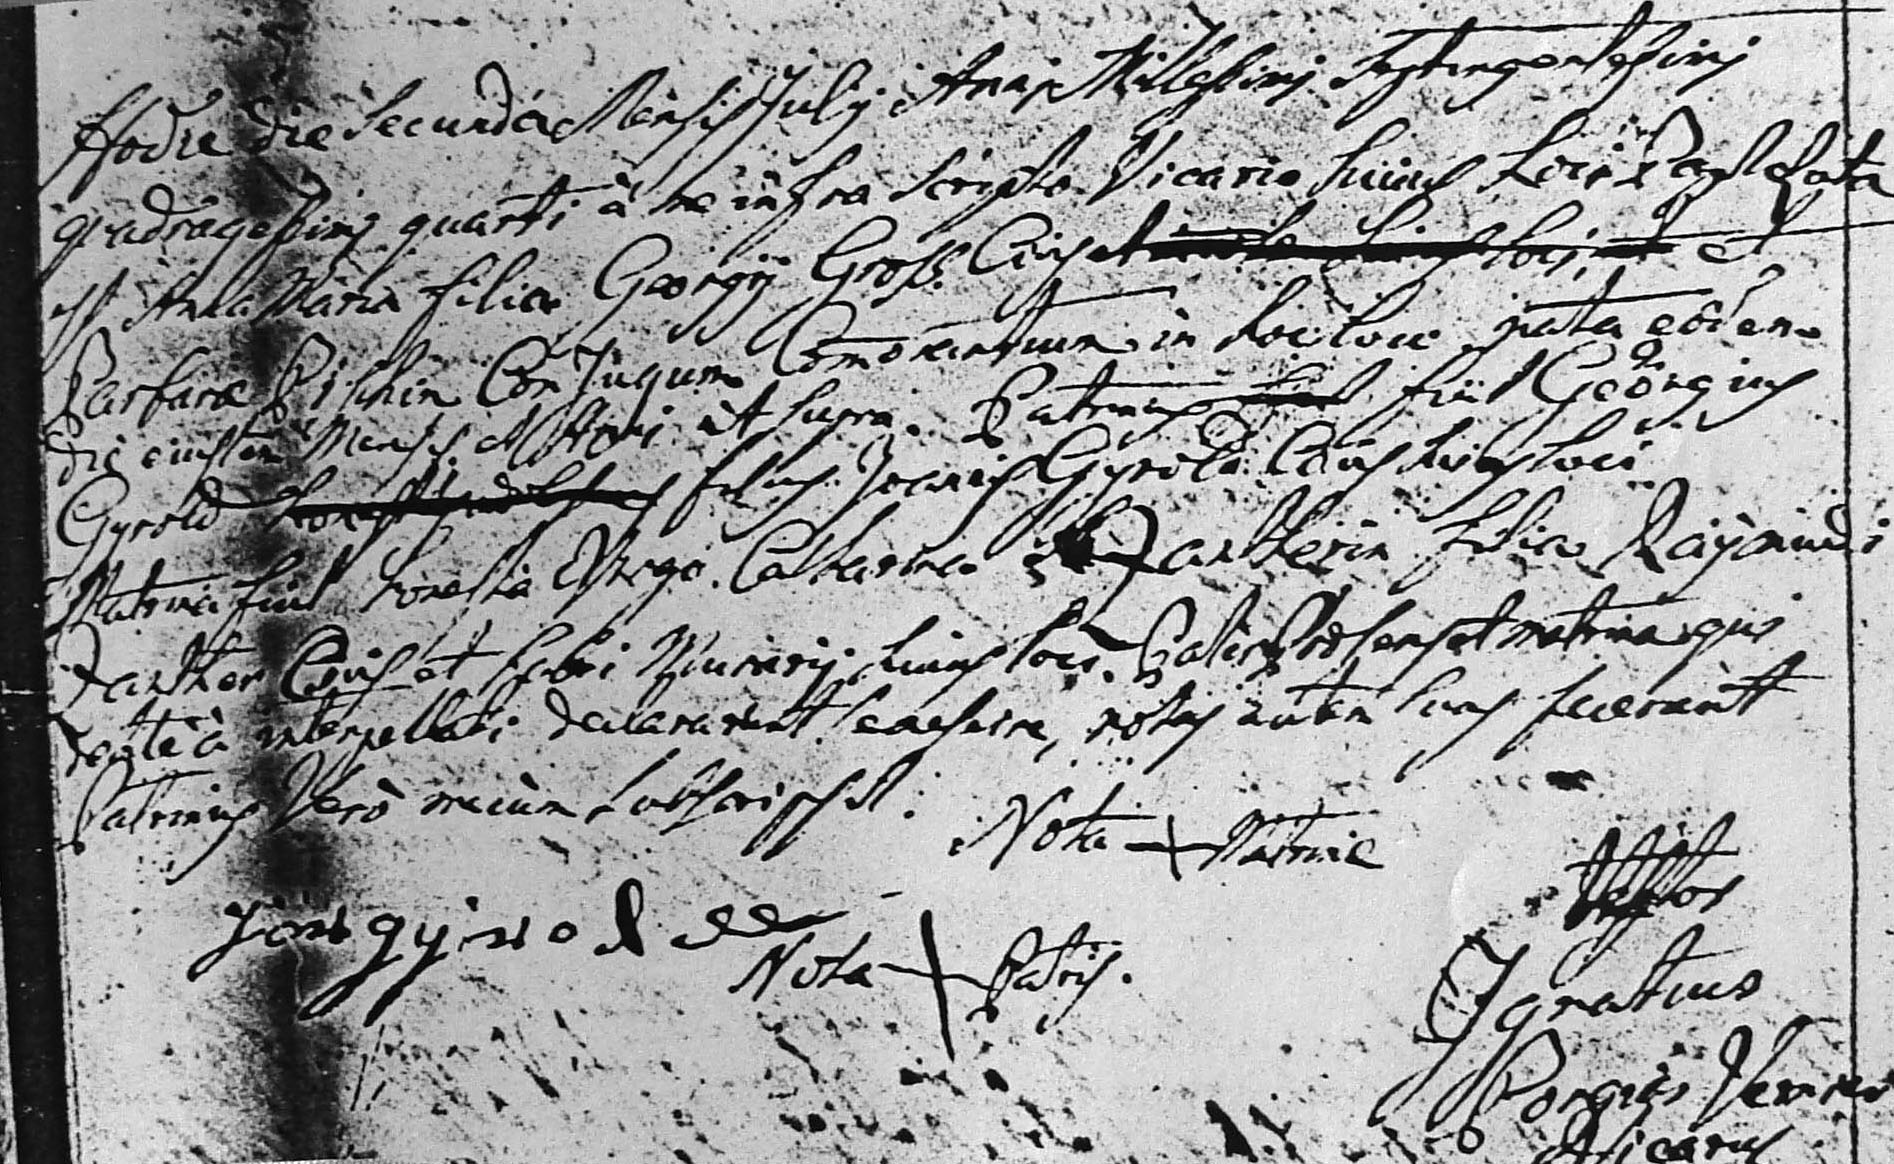 Hodie die Secunda Mensis July Anni Millesimi Septingentesimi
quadragesimi quarti à me infra scripto Vicario huius Loci Baptizata
est Anna Maria filia Georgij Gross Civis et
Barbarae Conjugum Comorantium in hoc loco nata eodem
die eiusdem Mensis et Anni ut supra. Patrinus fuit Geörgius
Gyrold filius Joannis Gyrold Civis huius loci
Matrina fuit honesta Virgo Catharina Pankerin filia Raÿmundi
Civis et fabri Murarij huius loci. Pater Praesens et matrina qui
à interpellati declararunt se nescire, notas autem suas fecerunt
Patrinus Verò mecum subscripsit.
Nota + Matrinae
Jörg gyrold
Nota + Patris.
Testor
Ignatius
Vernier
Vicarius